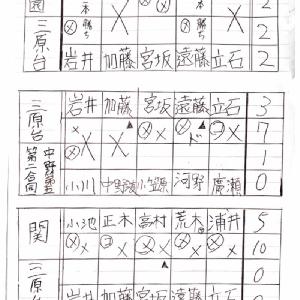 園 本 勝ち 勝ち 2
三原台 2
岩井 加藤 宮坂 遠藤 立石 2
三原台 岩井 加藤 宮坂 遠藤 立石 3
× × × ▲ × × 7
第二合同 中野 × × ド × 1
小川 小笠原 河野 廣瀬 0
関 小池 正木 高村 荒木 浦井 5
× × × × × 10
三原台 ▲ 0
岩井 加藤 宮坂 遠藤 立石 0